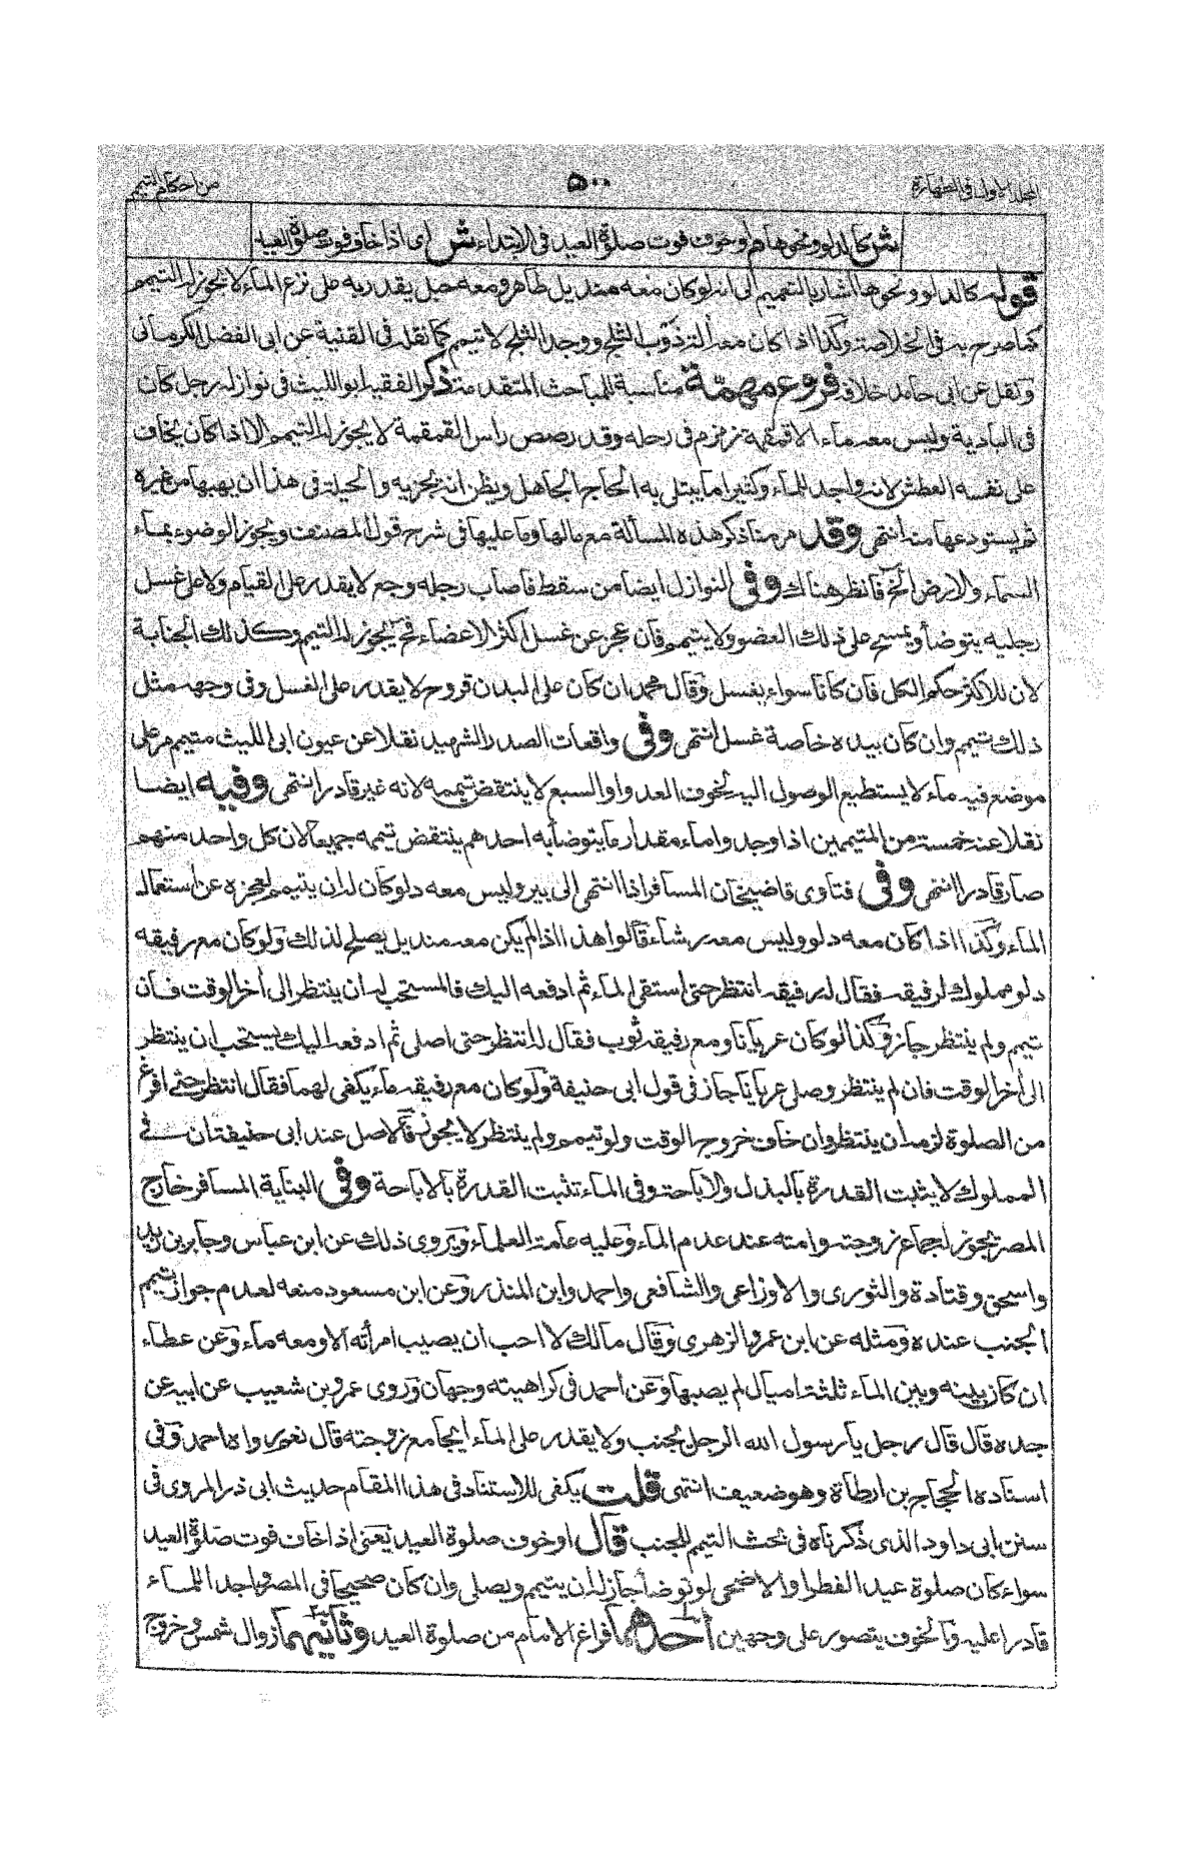 المجلد الاول فى الطهارة ٥٠٠ من احكام التيمم
ش كالدلو ونحوها م او خوف فوت صلوة العيد فى الابتداء ش اى اذا خاف فوت صلوة العيد
قوله كالدلو ونحوها اشار بالتعميم الى انه لو كان معه منديل طاهر ومعه حبل يقدر به على نزع الماء لا يجوز له التيمم
كما صرح به فى الخلاصة وكذا اذا كان معه آلة ذوب الثلج ووجد الثلج لا تيمم كما نقله فى القنية عن ابى الفضل الكرمانى
ونقل عن ابى حامد خلافه فروع مهمة مناسبة للمباحث المتقدمة ذكر الفقيه ابو الليث فى نوازله رجل كان
فى البادية وليس معه ماء الا قمقمة زمزم فى رحله وقد رصص راس القمقمة لا يجوز له التيمم الا اذا كان يخاف
على نفسه العطش لانه واجد للماء وكثيرا ما يبتلى به الحاج الجاهل ويظن انه يجزيه والحيلة فى هذا ان يهبها من غيره
ثم يستودعها منه انتهى وقد مر منا ذكر هذه المسألة مع مالها وما عليها فى شرح قول المصنف ويجوز الوضوء بماء
السماء والارض الخ فانظر هناك وفى النوازل ايضا من سقط فاصاب رجله وجع لا يقدر على القيام ولا على غسل
رجليه يتوضأ ويمسح على ذلك العضو ولا يتيمم فان عجز عن غسل اكثر الاعضاء فح يجوز له التيمم وكذلك الجنابة
لان للاكثر حكم الكل فان كانا سواء يغسل وقال محمد ان كان على البدن قروح لا يقدر على الغسل وفى وجهه مثل
ذلك تيمم وان كان بيده خاصة غسل انتهى وفى واقعات الصدر الشهيد نقلا عن عيون ابى الليث متيمم مر على
موضع فيه ماء لا يستطيع الوصول اليه لخوف العدو او السبع لا ينتقض تيممه لانه غير قادر انتهى وفيه ايضا
نقلا عنه خمسة من المتيممين اذا وجدوا ماء مقدار ما يتوضأ به احدهم ينتقض تيممه جميعا لان كل واحد منهم
صار قادرا انتهى وفى فتاوى قاضيخان المسافر اذا انتهى الى بير وليس معه دلو كان له ان يتيمم لعجزه عن استعمال
الماء وكذا اذا كان معه دلو وليس معه رشاء قالوا هذا اذا لم يكن معه منديل يصلح لذلك ولو كان مع رفيقه
دلو مملوك لرفيقه فقال له رفيقه انتظر حتى استقى الماء ثم ادفعه اليك فالمستحب له ان ينتظر الى أخر الوقت فان
تيمم ولم ينتظر جاز وكذا لو كان عريانا ومع رفيقه ثوب فقال له انتظر حتى اصلى ثم ادفعه اليك يستحب ان ينتظر
الى أخر الوقت فان لم ينتظر وصلى عريانا جاز فى قول ابى حنيفة ولو كان مع رفيقه ماء يكفى لهما فقال انتظر حتى افرغ
من الصلوة لزمه ان ينتظر وان خاف خروج الوقت ولو تيمم ولم ينتظر لا يجوز فالاصل عند ابى حنيفة ان فى
المملوك لا يثبت القدرة بالبذل والاباحة وفى الماء تثبت القدرة بالاباحة وفى البناية المسافر خارج
المصر يجوز له جماع زوجته وامته عند عدم الماء وعليه عامة العلماء ويروى ذلك عن ابن عباس وجابر بن زيد
واسحق وقتادة والثورى والاوزاعى والشافعى واحمد وابن المنذر وعن ابن مسعود منعه لعدم جواز تيمم
الجنب عنده ومثله عن ابن عمر والزهرى وقال مالك لا احب ان يصيب امرأته الا ومعه ماء وعن عطاء
ان كان بينه وبين الماء ثلثة اميال لم يصبها وعن احمد فى كراهيته وجهان وروى عمرو بن شعيب عن ابيه عن
جده قال قال رجل يا رسول الله الرجل يجنب ولا يقدر على الماء ايجامع زوجته قال نعم رواه احمد وفى
اسناده الحجاج بن ارطاة وهو ضعيف انتهى قلت يكفى للاستناد فى هذا المقام حديث ابى ذر المروى فى
سنن ابى داود الذى ذكرناه فى بحث التيمم للجنب قال او خوف صلوة العيد يعنى اذا خاف فوت صلوة العيد
سواء كان صلوة عيد الفطر او الاضحى لو توضأ جاز له ان يتيمم ويصلى وان كان صحيحا فى المصر واجدا للماء
قادرا عليه والخوف يتصور على وجهين احدهما فراغ الامام من صلوة العيد وثانيهما زوال شمس وخروج